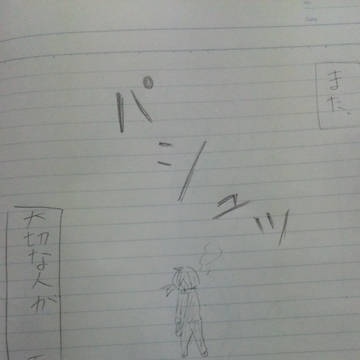 また、
パシュッ
大切な人が